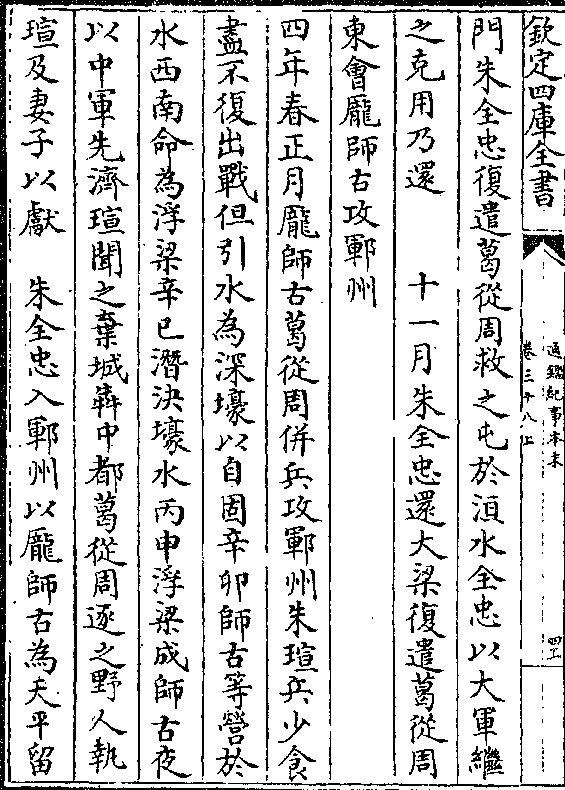 欽定四庫全書
通鑑紀事本末
卷三十八上
門朱全忠復遣葛從周救之屯於洹水全忠以大軍繼
之克用乃還　　十一月朱全忠還大梁復遣葛從周
東會龐師古攻鄆州
四年春正月龐師古葛從周併兵攻鄆州朱瑄兵少食
盡不復出戰但引水為深壕以自固辛卯師古等營於
水西南命為浮梁辛巳潛決壕水丙申浮梁成師古夜
以中軍先濟瑄聞之棄城犇中都葛從周逐之野人執
瑄及妻子以獻　朱全忠入鄆州以龐師古為天平留